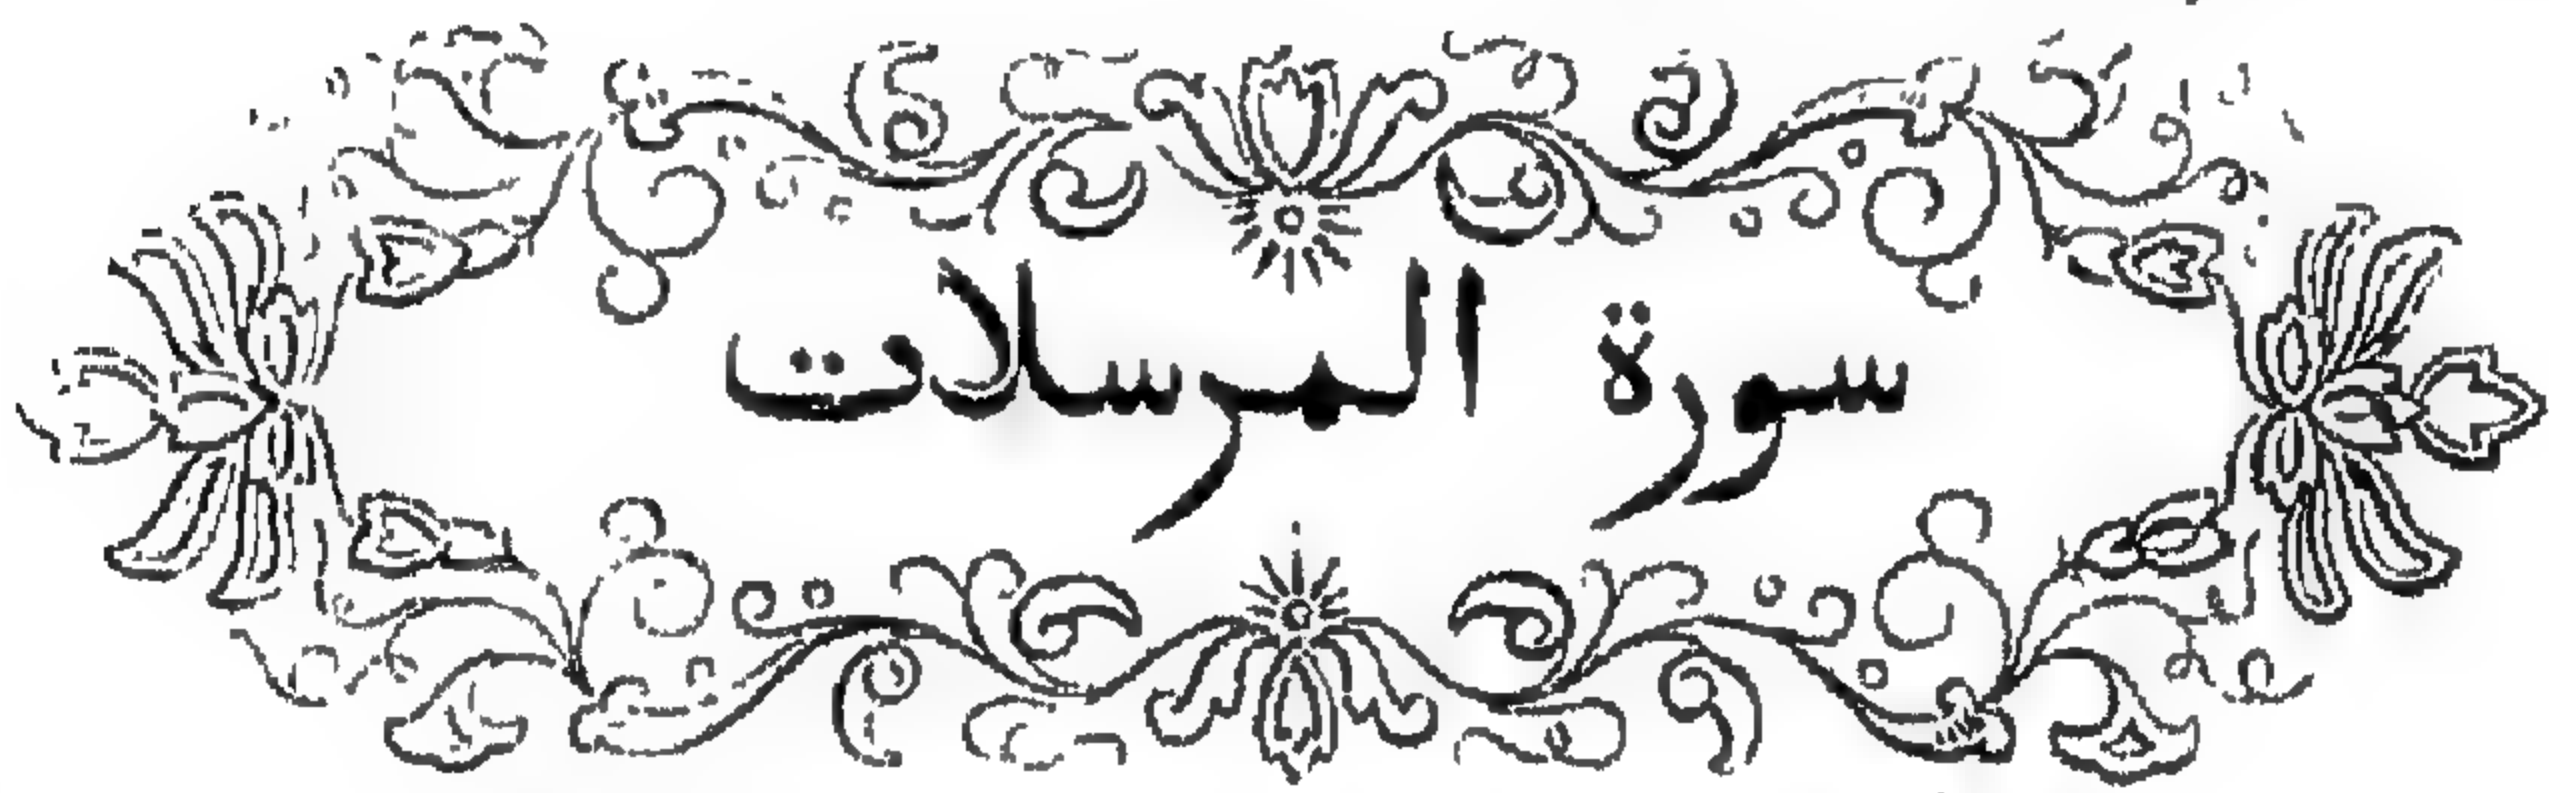 سورة المرسلات